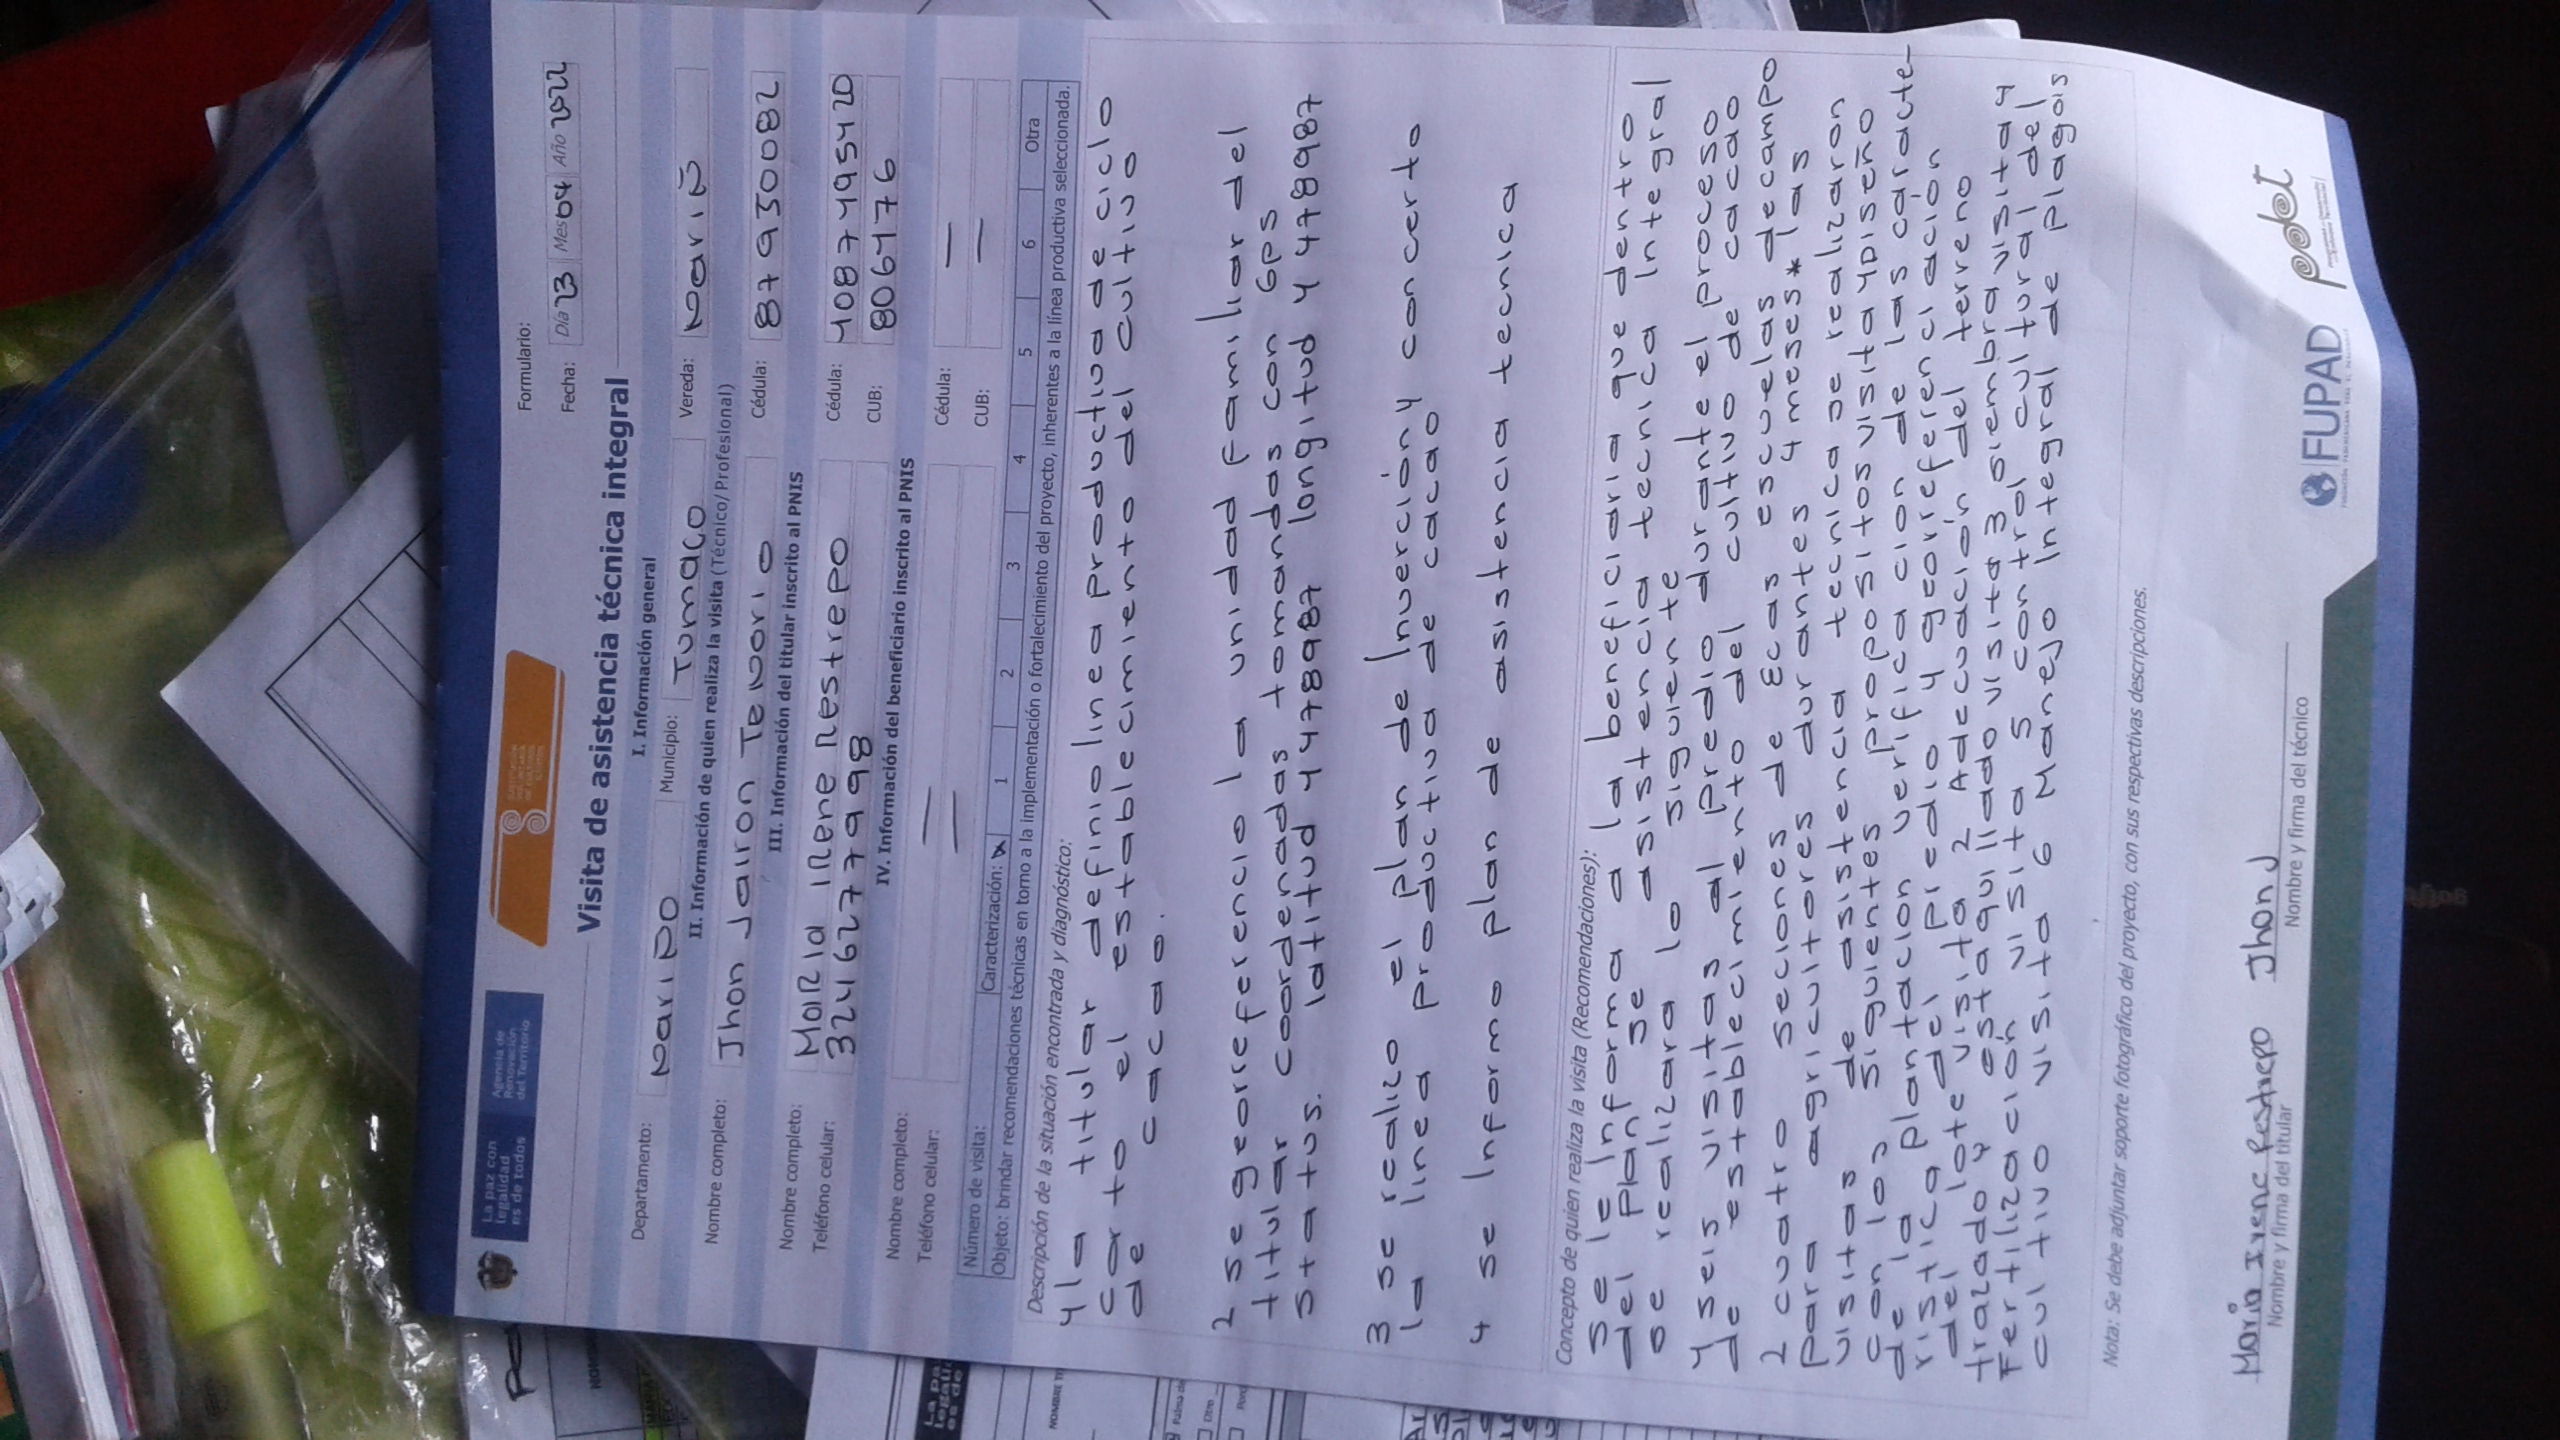 La paz con legalidad es de todos
Agencia de Renovación del Territorio
SUSTITUCIÓN VOLUNTARIA DE CULTIVOS ILÍCITOS
Formulario:
Fecha: Día 23 Mes 04 Año 2022
Visita de asistencia técnica integral
I. Información general
Departamento: NariÑo Municipio: Tumaco Vereda: NariÑ
II. Información de quien realiza la visita (Técnico/ Profesional)
Nombre completo: Jhon Jairon Tenorio Cédula: 87930082
III. Información del titular inscrito al PNIS
Nombre completo: MaRIa IRene Restrepo Cédula: 4087495420
Teléfono celular: 3246277998 CUB: 8064176
IV. Información del beneficiario inscrito al PNIS
Nombre completo: Cédula: —
Teléfono celular: CUB: —
Número de visita: Caracterización: X 1 2 3 4 5 6 Otra
Objeto: brindar recomendaciones técnicas en torno a la implementación o fortalecimiento del proyecto, inherentes a la línea productiva seleccionada.
Descripción de la situación encontrada y diagnóstico:
1 la titular definio linea productiva de ciclo
corto el establecimiento del cultivo
de cacao.
2 se georreferencio la unidad familiar del
titular coordenadas tomandas con Gps
status. latitud 4478987 longitud 4478987
3 se realizo el plan de Inverción y concerto
la linea productiva de cacao
4 se Informo plan de asistencia tecnica
Concepto de quien realiza la visita (Recomendaciones):
se le Informa a la beneficiaria que dentro
del plan se asistencia tecnica Integral
se realizara lo siguiente
1 seis visitas al predio durante el proceso
de establecimiento del cultivo de cacao
2 cuatro seciones de Ecas escuelas de campo
para agricuitores durantes 4 meses* las
visitas de asistencia tecnica se realizaron
con los siguientes propositos visita 1 Diseño
de la plantacion verificacion de las caracte-
ristica del predio y georeferenciación
del lote visita 2 Adecuación del terreno
trazado y estaquillado visita 3 siembra visita 4
Fertilización visita 5 control cultural del
cultivo visita 6 Manejo Integral de plagas
Nota: Se debe adjuntar soporte fotográfico del proyecto, con sus respectivas descripciones.
Maria Irene Restrepo Jhon J
Nombre y firma del titular Nombre y firma del técnico
FUPAD
pdet